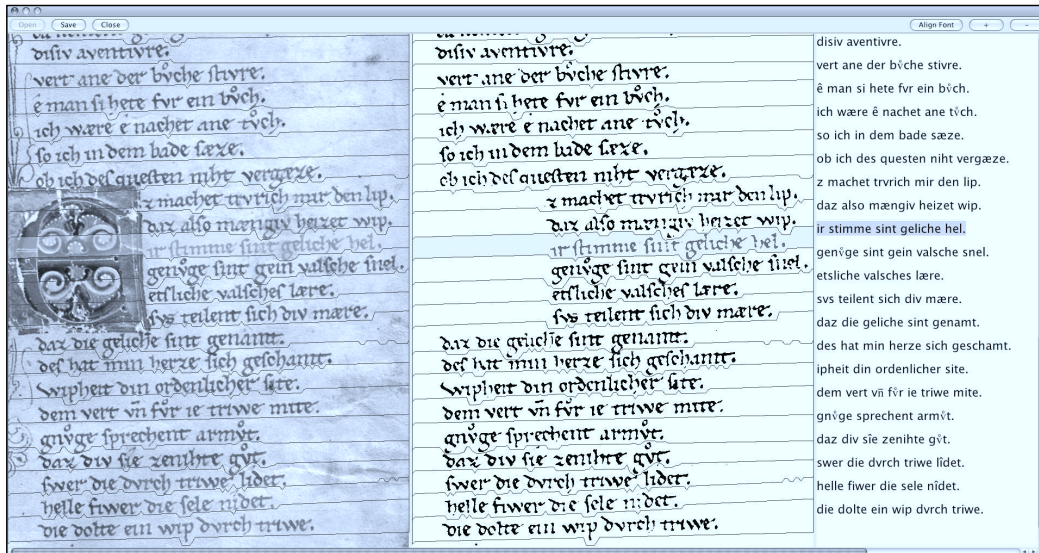 Open Save Close Align Font + -
diſiv aventivre.
vert ane der bvͦche ſtivre.
é man ſi hete fvr ein bvͦch.
ich wære é nachet ane tvͦch.
ſo ich in dem bade ſæze.
ob ich deſ queſten niht vergæze.
z machet trvrich mir den lip.
daz alſo mængiv heizet wip.
ir ſtimme ſint geliche hel.
genvͦge ſint gein valſche ſnel.
etſliche valſcheſ lære.
ſvs teilent ſich div mære.
daz die geliche ſint genamt.
deſ hat min herze ſich geſchamt.
Wipheit din ordenlicher ſite.
dem vert vn̄ fvͦr ie triwe mite.
gnvͦge ſprechent armvͦt.
daz div ſîe zenihte gvͦt.
ſwer die dvrch triwe lîdet.
helle fiwer die ſele nîdet.
die dolte ein wip dvrch triwe.
diſiv aventivre.
vert ane der bvͦche ſtivre.
é man ſi hete fvr ein bvͦch.
ich wære é nachet ane tvͦch.
ſo ich in dem bade ſæze.
ob ich deſ queſten niht vergæze.
z machet trvrich mir den lip.
daz alſo mængiv heizet wip.
ir ſtimme ſint geliche hel.
genvͦge ſint gein valſche ſnel.
etſliche valſcheſ lære.
ſvs teilent ſich div mære.
daz die geliche ſint genamt.
deſ hat min herze ſich geſchamt.
Wipheit din ordenlicher ſite.
dem vert vn̄ fvͦr ie triwe mite.
gnvͦge ſprechent armvͦt.
daz div ſîe zenihte gvͦt.
ſwer die dvrch triwe lîdet.
helle fiwer die ſele nîdet.
die dolte ein wip dvrch triwe.
disiv aventivre.
vert ane der bvͦche stivre.
ê man si hete fvr ein bvͦch.
ich wære ê nachet ane tvͦch.
so ich in dem bade sæze.
ob ich des questen niht vergæze.
z machet trvrich mir den lip.
daz also mængiv heizet wip.
ir stimme sint geliche hel.
genvͦge sint gein valsche snel.
etsliche valsches lære.
svs teilent sich div mære.
daz die geliche sint genamt.
des hat min herze sich geschamt.
ipheit din ordenlicher site.
dem vert vn̄ fvͦr ie triwe mite.
gnvͦge sprechent armvͦt.
daz div sîe zenihte gvͦt.
swer die dvrch triwe lîdet.
helle fiwer die sele nîdet.
die dolte ein wip dvrch triwe.